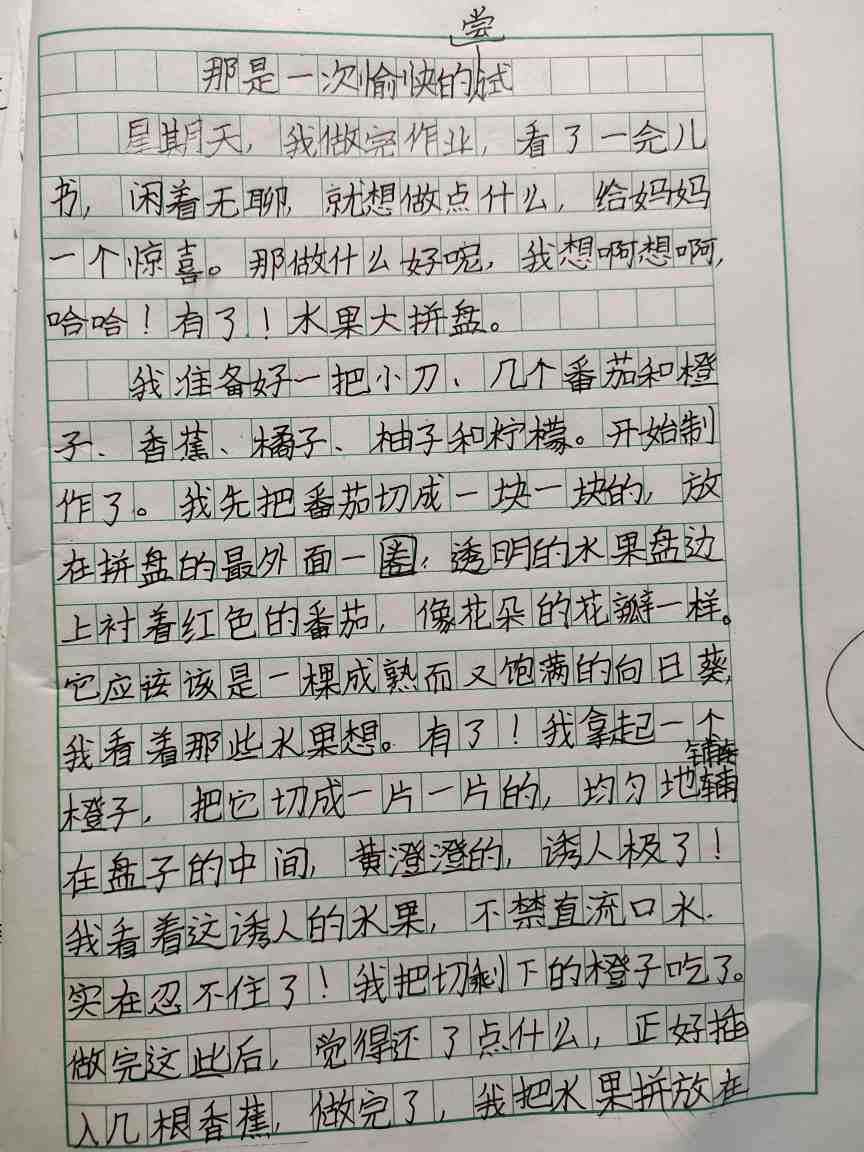 尝
那是一次愉快的试
星期天，我做完作业，看了一会儿
书，闲着无聊，就想做点什么，给妈妈
一个惊喜。那做什么好呢，我想啊想啊，
哈哈！有了！水果大拼盘。
我准备好一把小刀、几个番茄和橙
子、香蕉、橘子、柚子和柠檬。开始制
作了。我先把番茄切成一块一块的，放
在拼盘的最外面一圈，透明的水果盘边
上衬着红色的番茄，像花朵的花瓣一样。
它应该该是一棵成熟而又饱满的向日葵，
我看着那些水果想。有了！我拿起一个
橙子，把它切成一片一片的，均匀地辅
铺
在盘子的中间，黄澄澄的，诱人极了！
我看着这诱人的水果，不禁直流口水.
实在忍不住了！我把切剩下的橙子吃了。
做完这些后，觉得还了点什么，正好插
入几根香蕉，做完了，我把水果拼放在